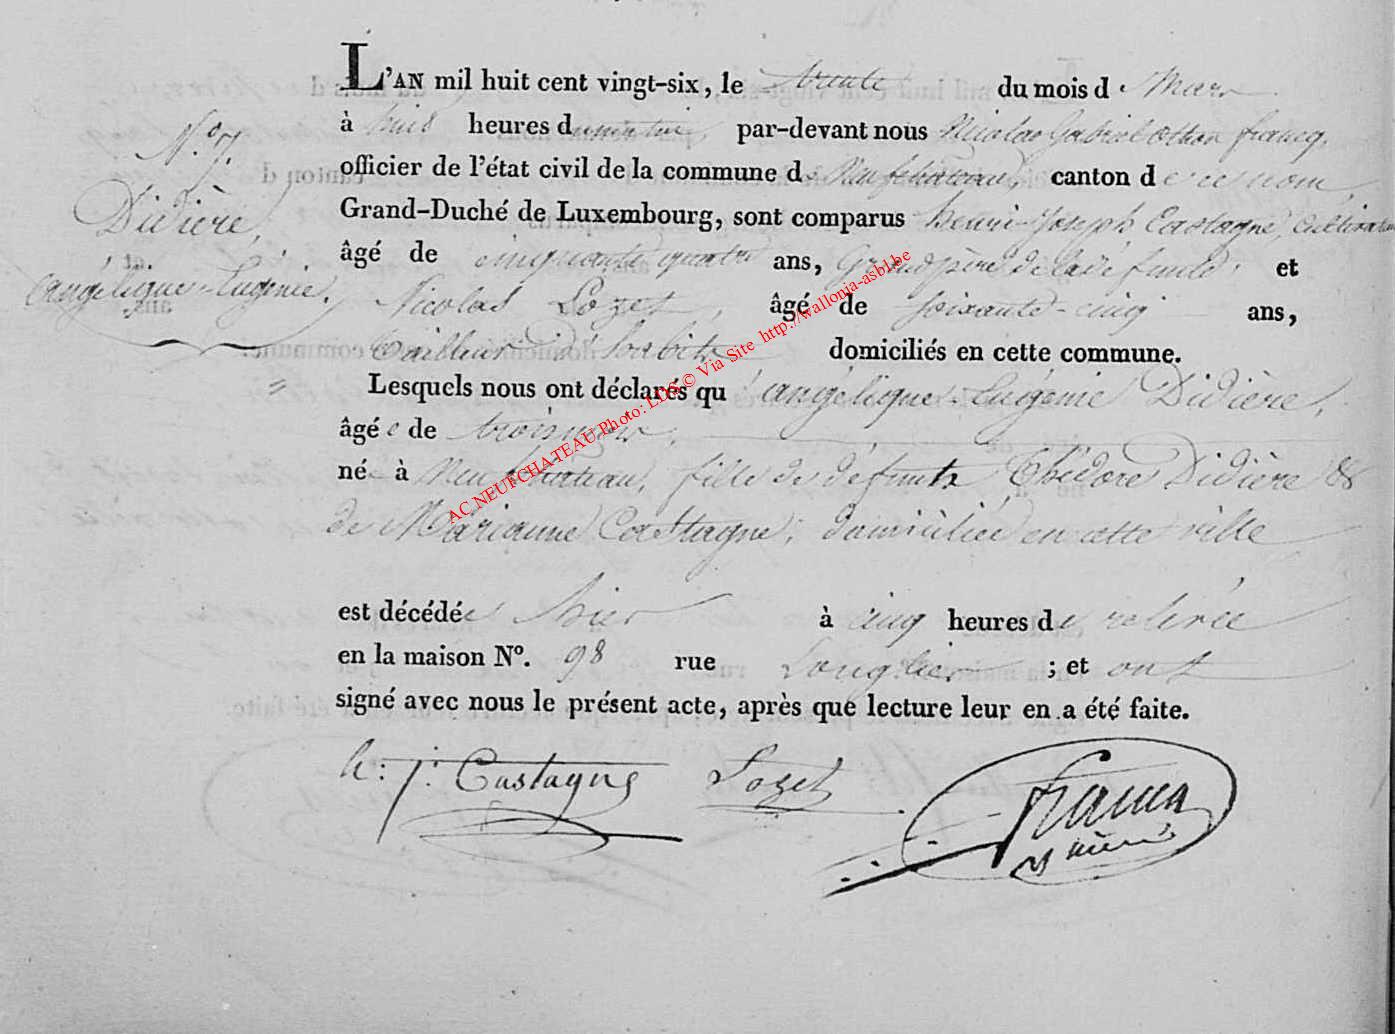 L'AN mil huit cent vingt-six, le trente du mois de Mars
à huit heures du matin, par-devant nous Nicolas Gabriel Francq,
officier de l'état civil de la commune de Neufchâteau, canton de ce nom,
Grand-Duché de Luxembourg, sont comparus henri-Joseph Castagne, Cultivateur
âgé de cinquante quatre ans, Grand père de la défunte, et
Nicolas Lozet, âgé de soixante-cinq ans,
tailleur d'habits domiciliés en cette commune.
N.° 7.
Didière,
angélique-Eugénie.
Lesquels nous ont déclarés qu'angélique-Eugénie Didière,
âgée de trois mois,
née à Neufchateau, fille de défunt Thédore Didière &
de Marianne Castagne, domiciliée en cette ville
est décédée hier à cinq heures de relevée
en la maison N°. 98 rue Longlier ; et ont
signé avec nous le présent acte, après que lecture leur en a été faite.
h: j: Castagne Lozet Francq
AC NEUFCHATEAU Photo: LDS © Via Site http://wallonia-asbl.be